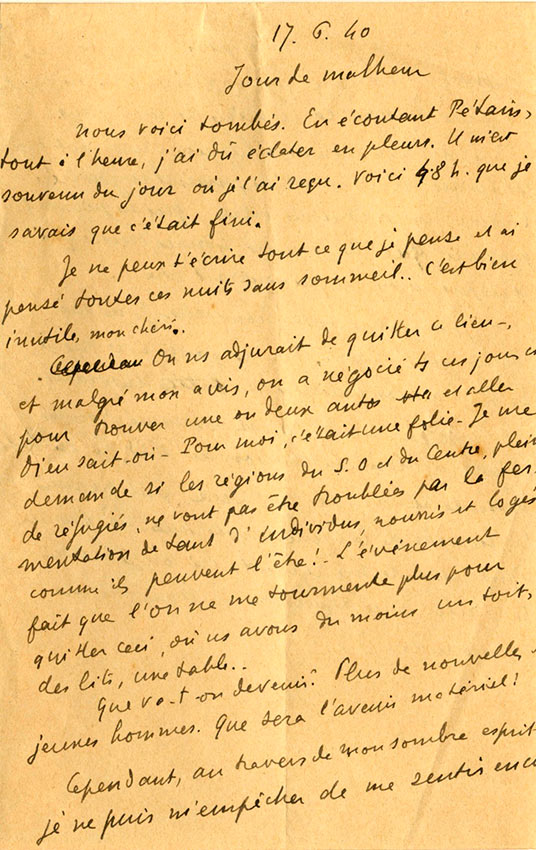 17. 6. 40
Jour de malheur
Nous voici tombés. En écoutant Pétain,
tout à l'heure, j'ai dû éclater en pleurs. Il m'est
souvenu du jour où je l'ai reçu. Voici 48 h. que je
savais que c'était fini.
Je ne peux t'écrire tout ce que je pense et ai
pensé toutes ces nuits sans sommeil.. C'est bien
inutile, mon chéri..
On ns adjurait de quitter ce lieu -,
et malgré mon avis, on a négocié ts ces jours ci
pour trouver une ou deux autos et aller
Dieu sait-où - Pour moi, c'était une folie - Je me
demande si les régions du S.O et du Centre, pleines
de réfugiés, ne vont pas être troublées par la fer-
mentation de tant d'individus, nourris et logés
comme ils peuvent l'être! - L'événement
fait que l'on ne me tourmente plus pour
quitter ceci, où ns avons du moins un toit,
des lits, une table..
Que va-t-on devenir? Plus de nouvelles
jeunes hommes. Que sera l'avenir matériel?
Cependant, au travers de mon sombre esprit
je ne puis m'empêcher de me sentir enco